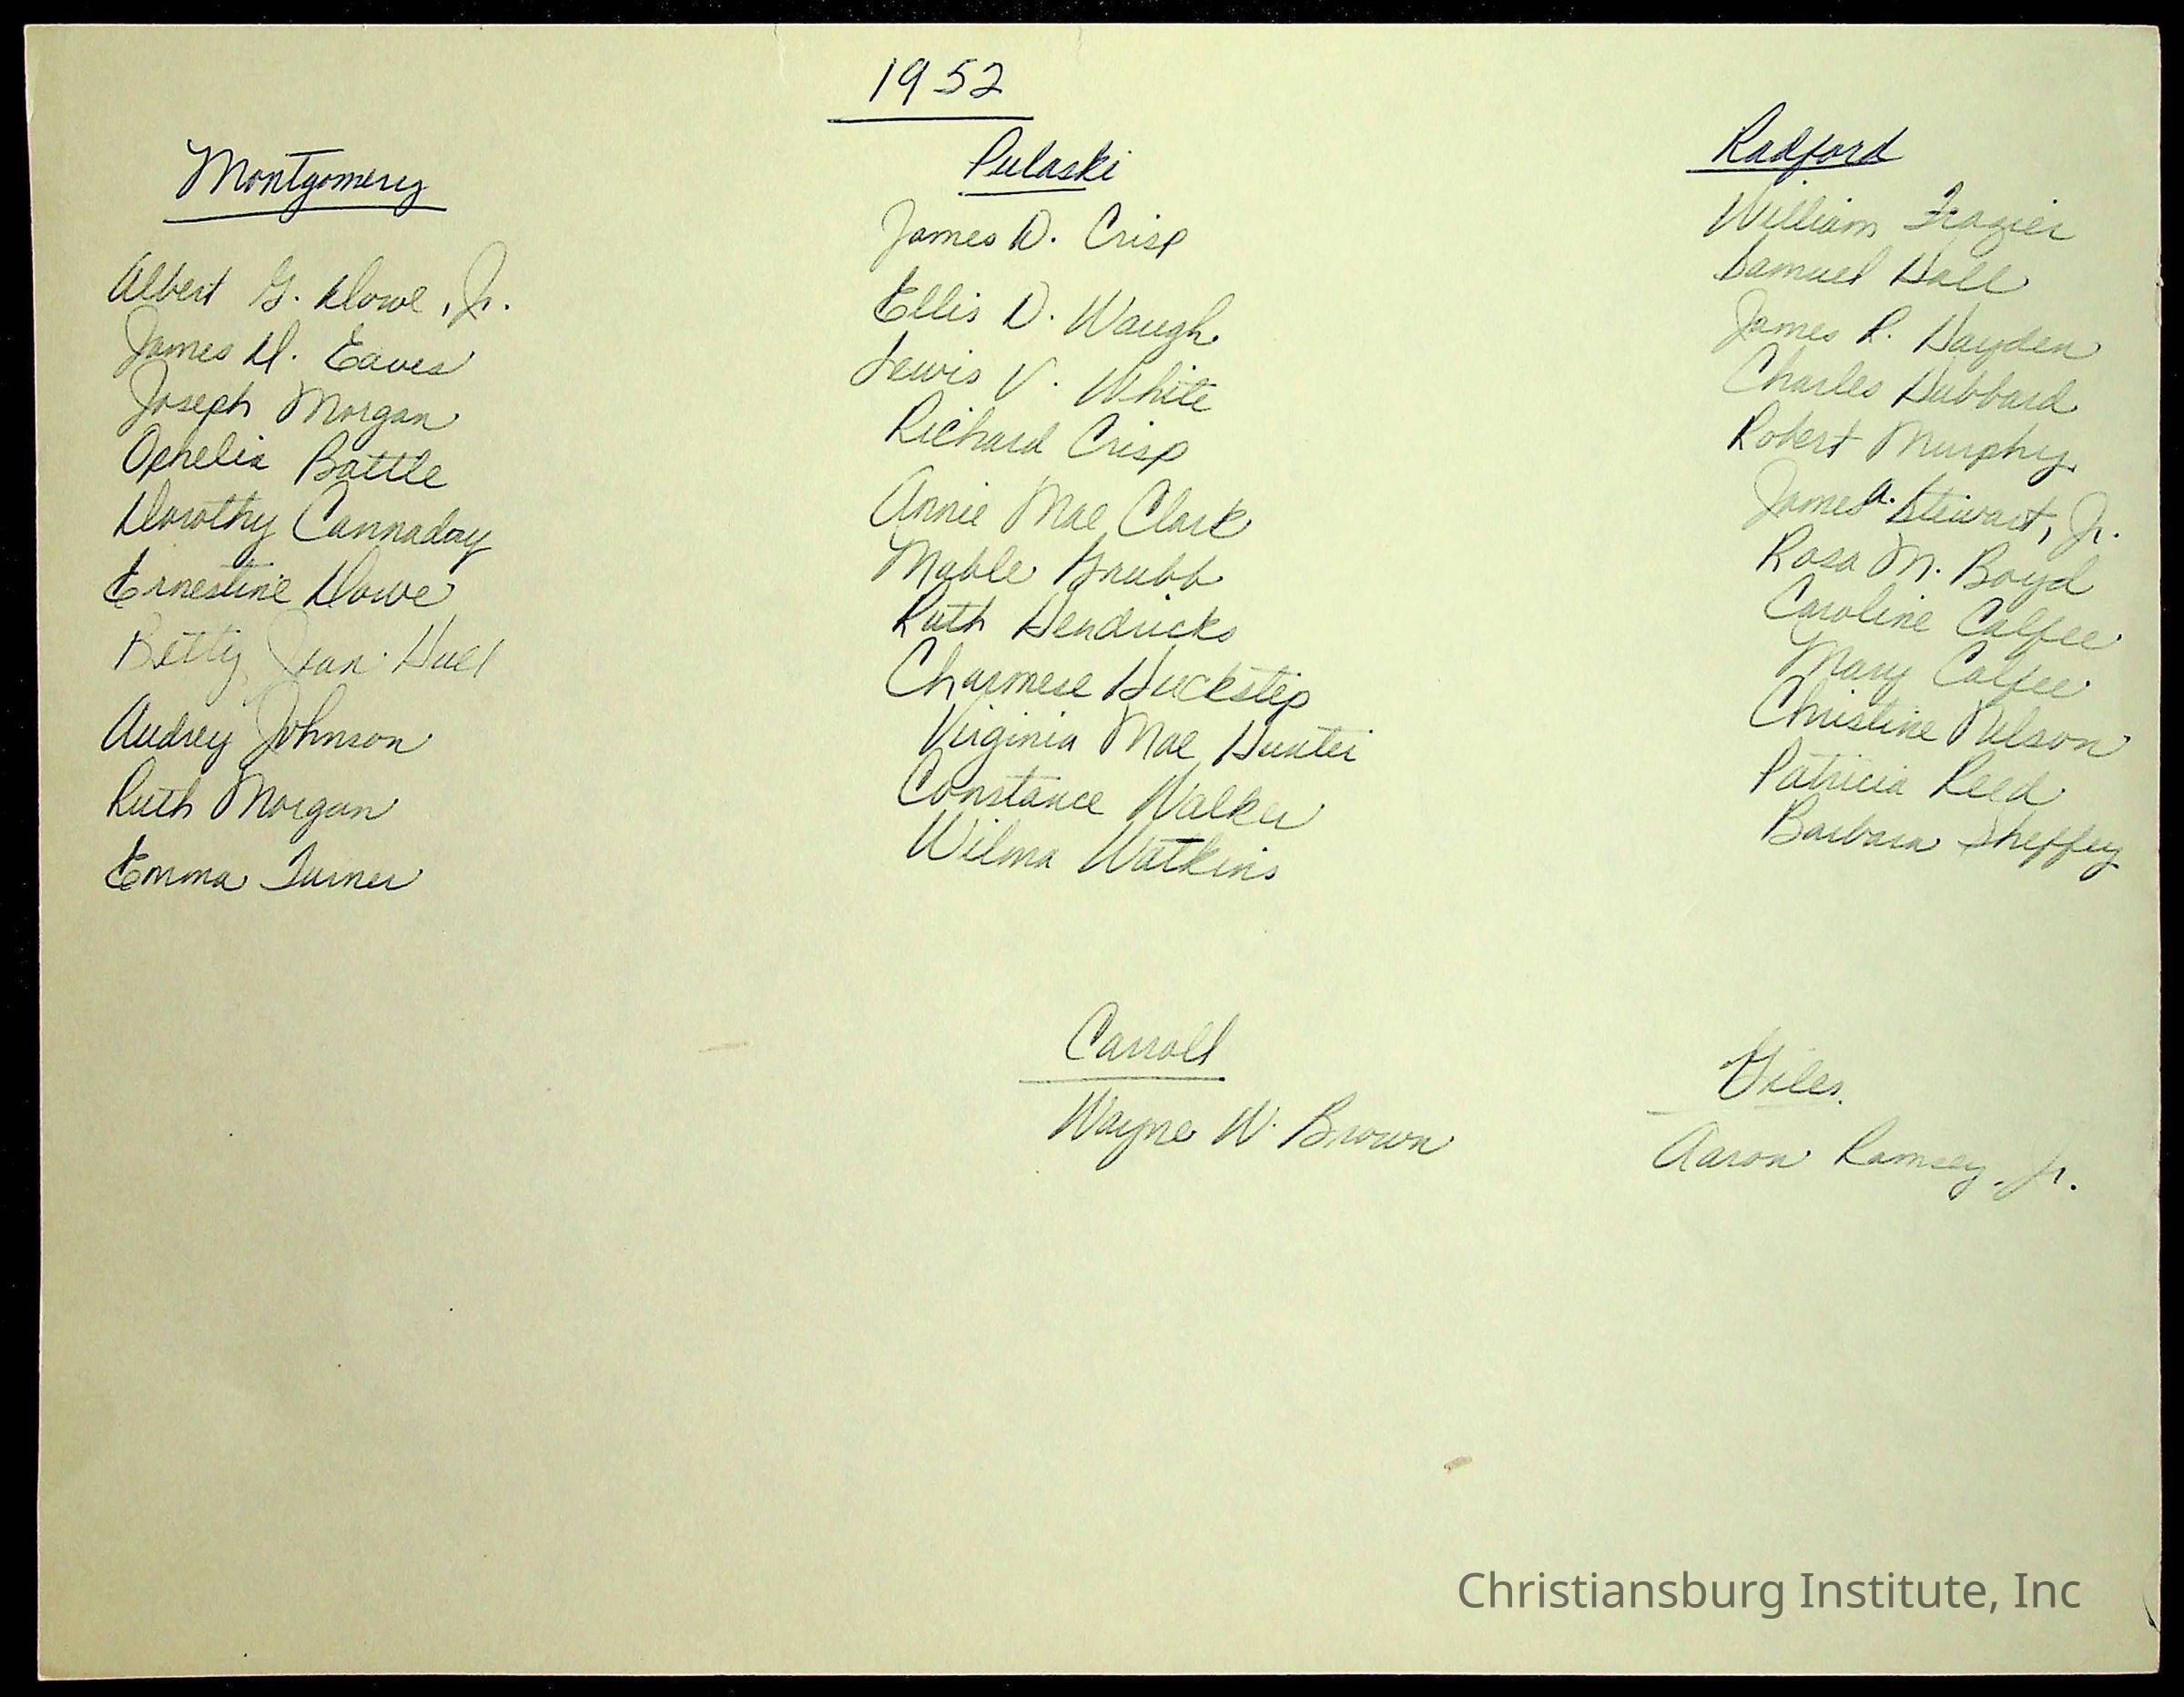 1952
Montgomery
Albert G. Dowe, Jr.
James H. Eaves
Joseph Morgan
Ophelia Battle
Dorothy Cannaday
Ernestine Dowe
Betty Jean Hull
Audrey Johnson
Ruth Morgan
Emma Turner
Pulaski
James D. Crisp
Ellis D. Waugh
Lewis V. White
Richard Crisp
Annie Mae Clark
Mable Grubb
Ruth Hendricks
Charmese Huckstep
Virginia Mae Hunter
Constance Walker
Wilma Watkins
Radford
William Frazier
Samuel Hall
James R. Hayden
Charles Hubbard
Robert Murphy
James A. Stewart, Jr.
Rosa M. Boyd
Caroline Calfee
Mary Calfee
Christine Nelson
Patricia Reed
Barbara Sheffey
Carroll
Wayne W. Brown
Giles
Aaron Ramsey, Jr.
Christiansburg Institute, Inc